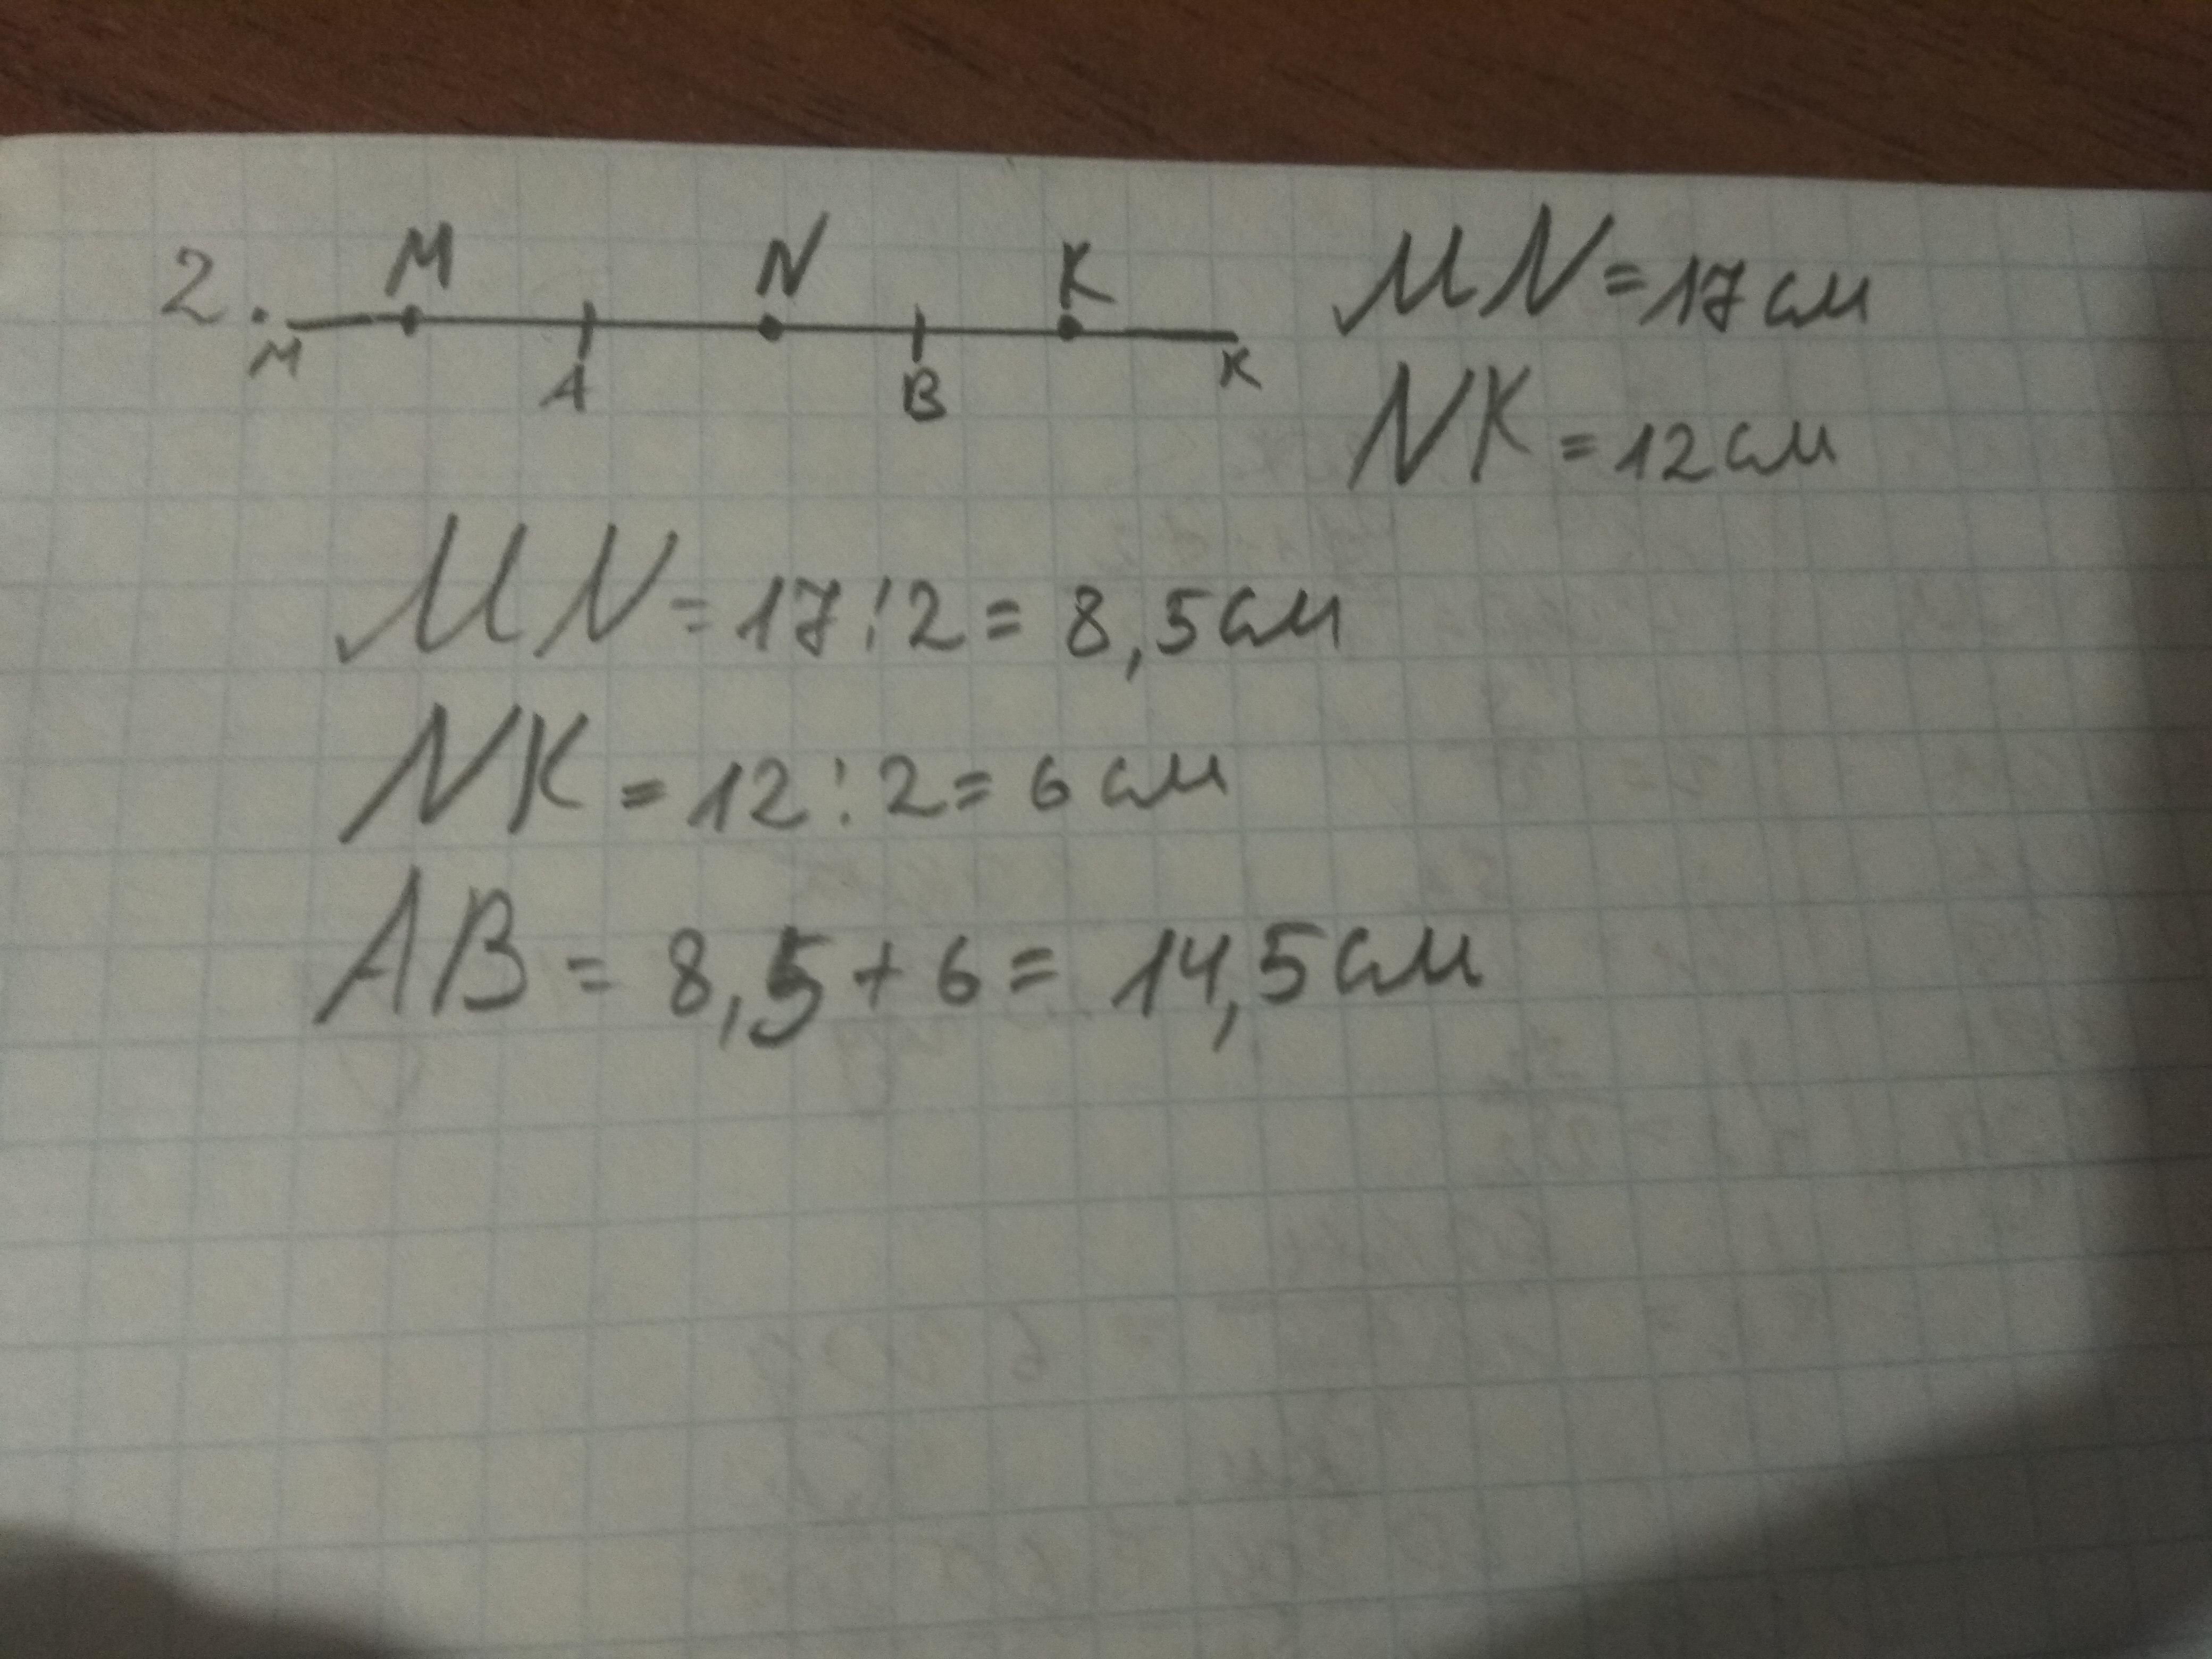 2. M N K MN = 17 см
M A B K
NK = 12 см
MN = 17 : 2 = 8,5 см
NK = 12 : 2 = 6 см
AB = 8,5 + 6 = 14,5 см